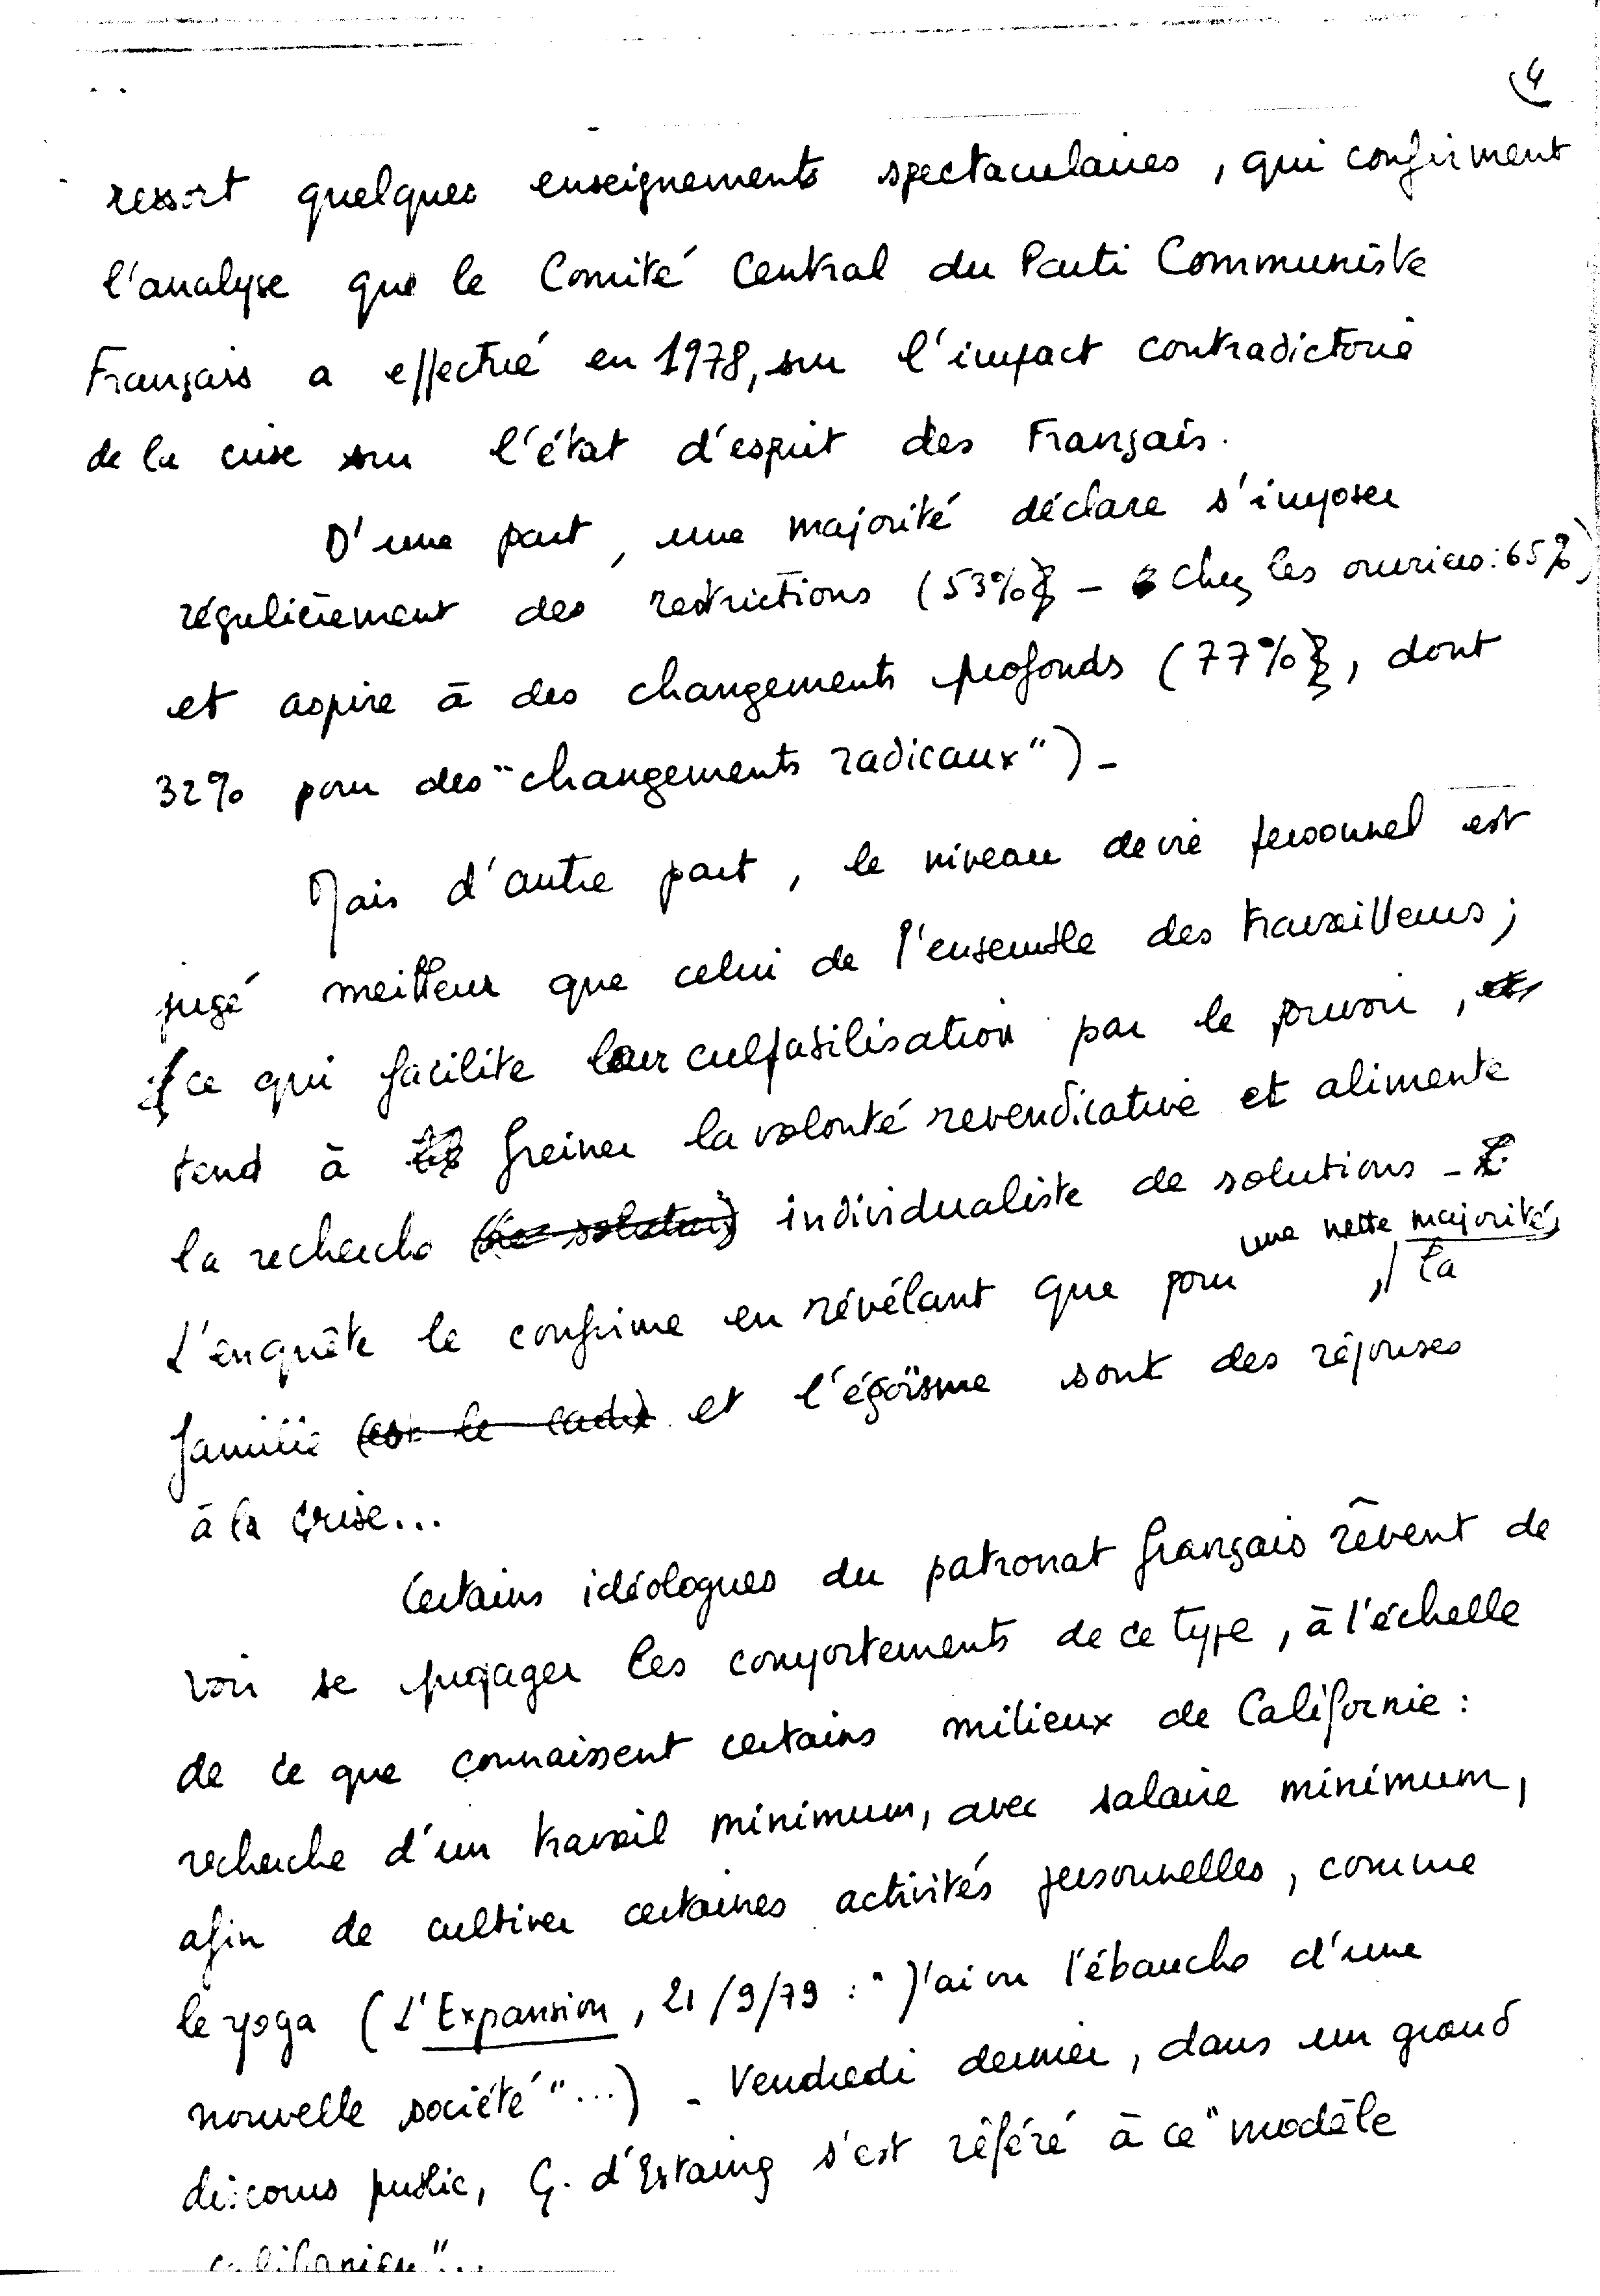 4
ressort quelques enseignements spectaculaires, qui confirment
l'analyse que le Comité Central du Parti Communiste
Français a effectué en 1978, sur l'impact contradictoire
de la crise sur l'état d'esprit des Français.
D'une part, une majorité déclare s'imposer
régulièrement des restrictions (53% - chez les ouvriers : 65%)
et aspire à des changements profonds (77%, dont
32% pour des "changements radicaux") -
Mais d'autre part, le niveau de vie personnel est
jugé meilleur que celui de l'ensemble des travailleurs ;
ce qui facilite leur culpabilisation par le pouvoir,
tend à freiner la volonté revendicative et alimente
la recherche (de solutions) individualiste de solutions -
une nette majorité,
L'enquête le confirme en révélant que pour la
famille (est le cadre) et l'égoïsme sont des réponses
à la crise...
Certains idéologues du patronat français rêvent de
voir se propager les comportements de ce type, à l'échelle
de ce que connaissent certains milieux de Californie :
recherche d'un travail minimum, avec salaire minimum,
afin de cultiver certaines activités personnelles, comme
le yoga (L'Expansion, 21/9/79 : "J'ai vu l'ébauche d'une
nouvelle société"...) - Vendredi dernier, dans un grand
discours public, G. d'Estaing s'est référé à ce "modèle
californien"...